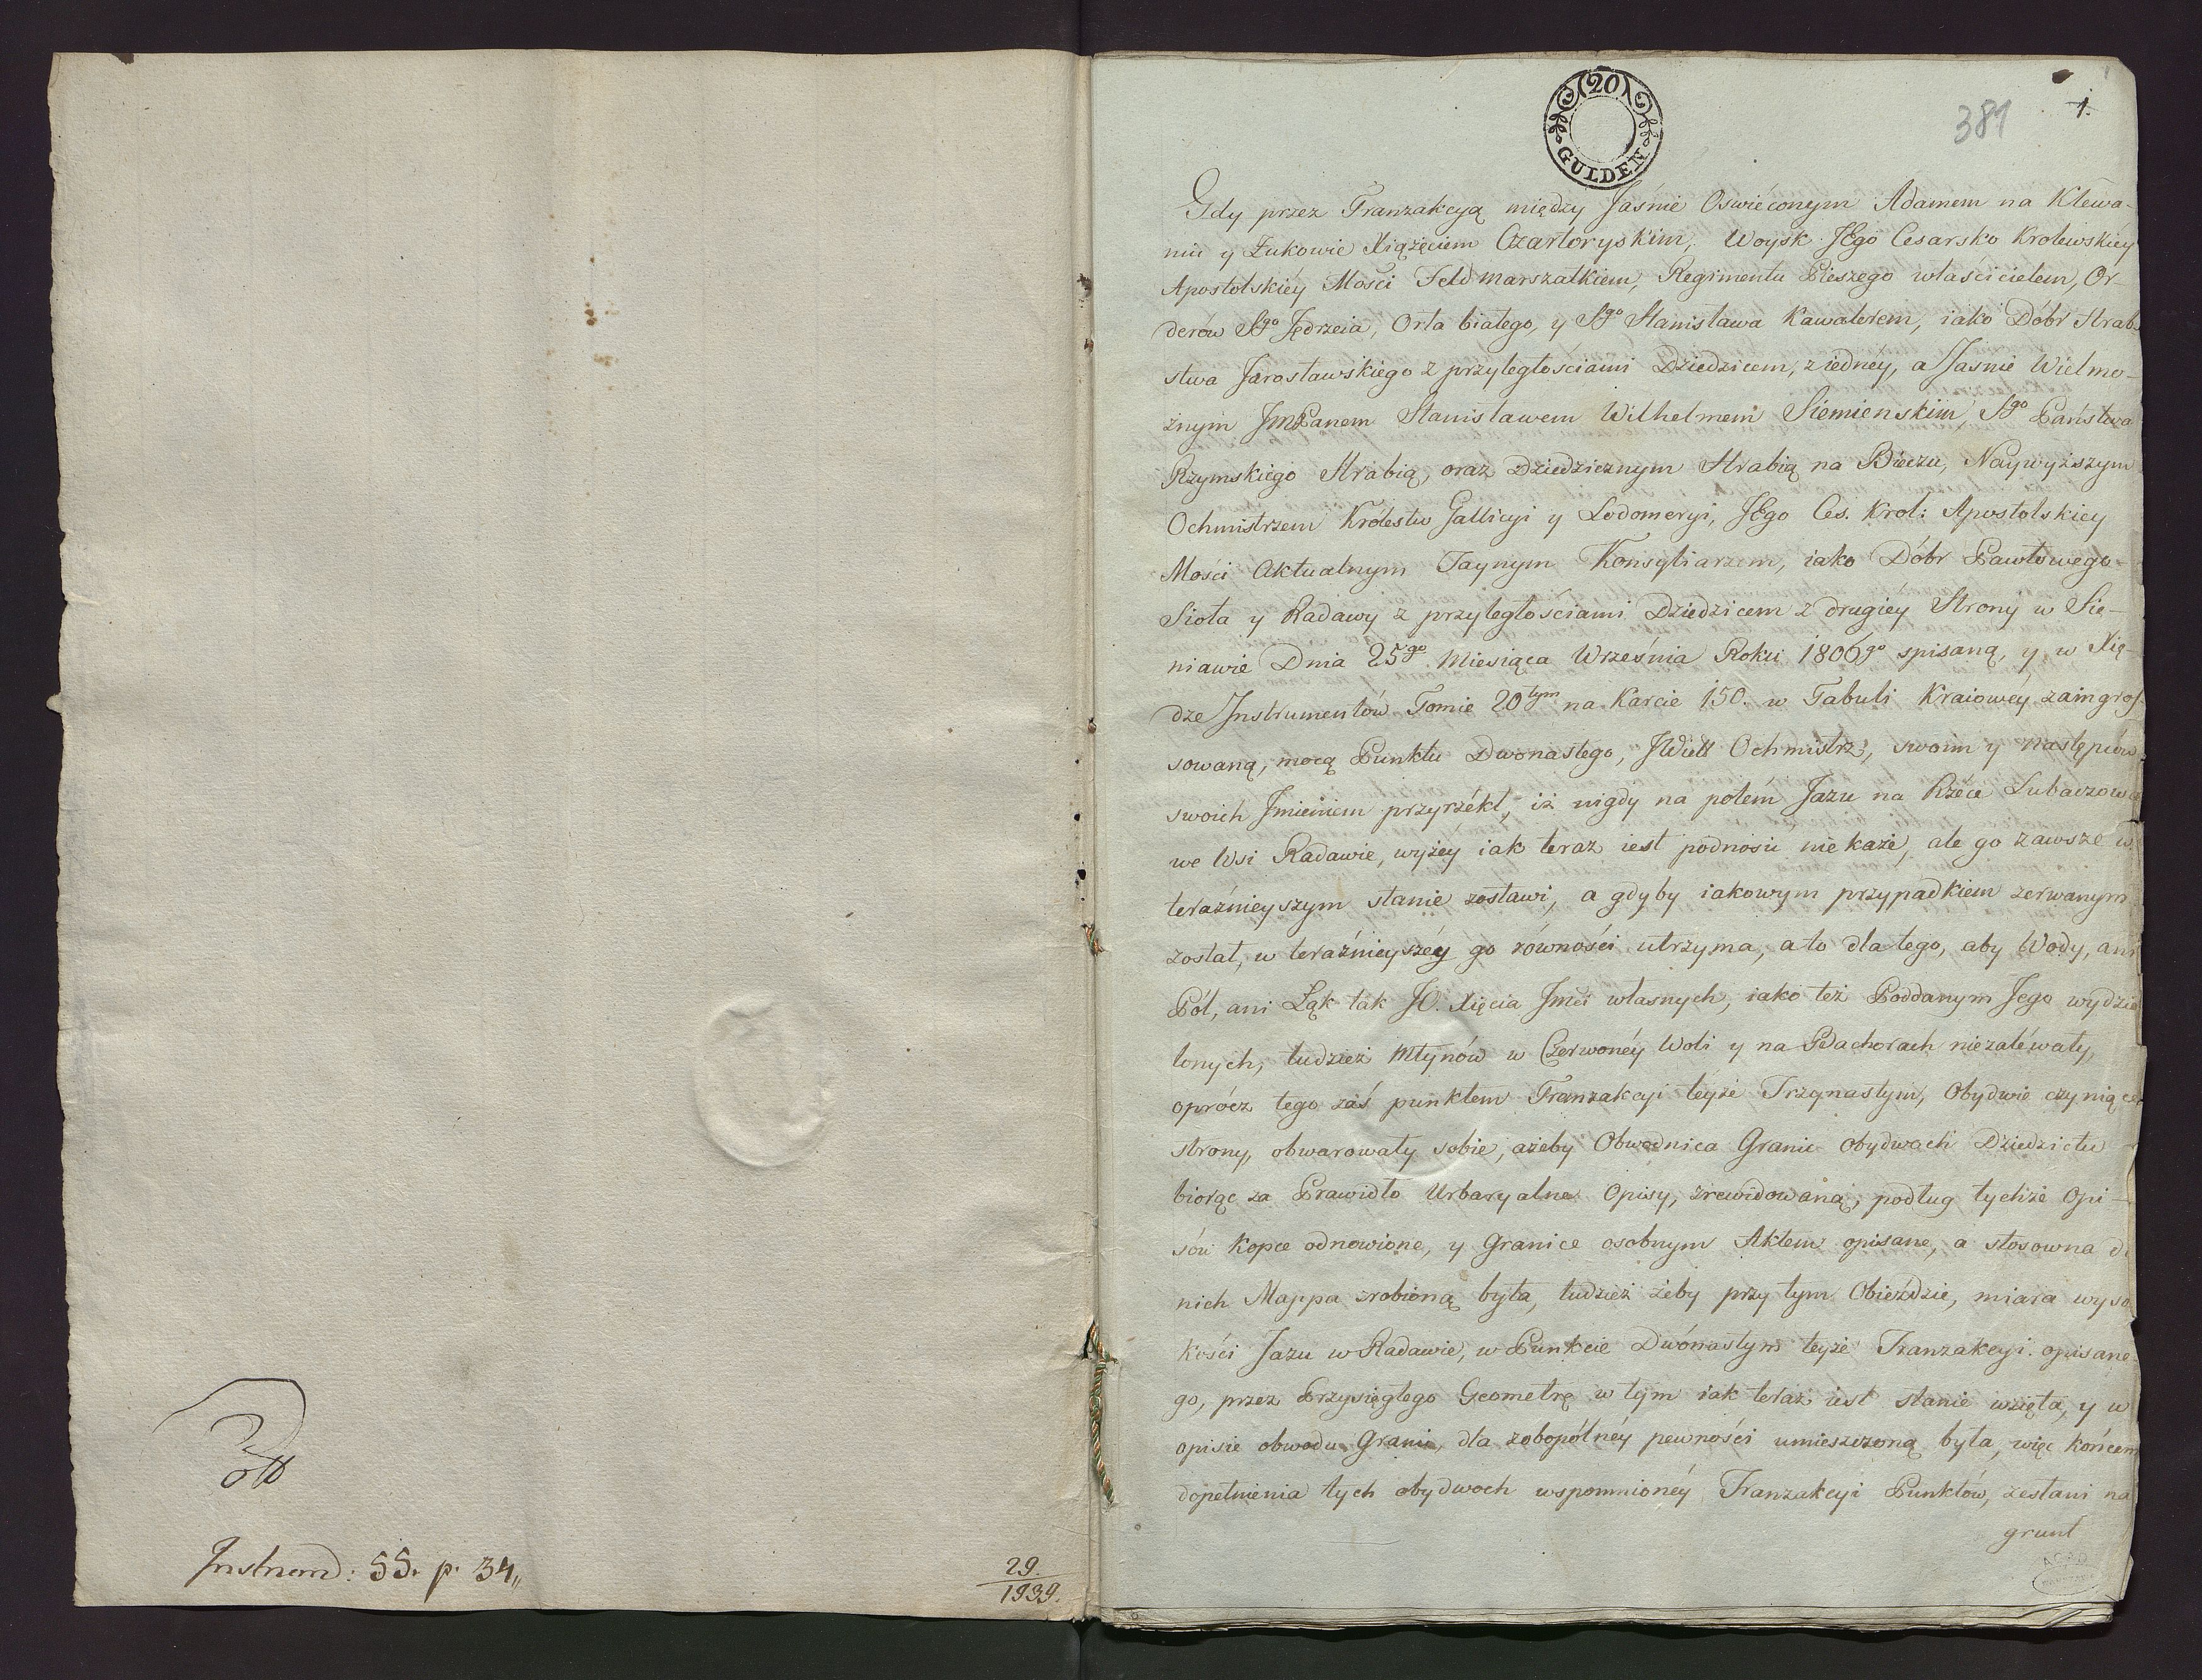 Instrum: 55. p. 34,,
29.
1939.
20
GULDEN
381
1.
Gdy przez Tranzakcyą między Jaśnie Oswiéconym Adamem na Klewa-
niu y Żukowie Xiążęciem Czartoryskim, Woysk JEgo Cesarsko Krolewskiey
Apostolskiéy Mości Feldmarszałkiem, Regimentu Pieszego właścicielem, Or-
derów Sgo Jędrzeia, Orła białego, y Sgo Stanisława Kawalerem, iako Dóbr Hrab-
stwa Jarosławskiego z przyległościami Dziedzicem, z iednéy, a Jaśnie Wielmo-
żnym JmPanem Stanisławem Wilhelmem Siemienskim, Sgo Państwa
Rzymskiego Hrabią, oraz Dziedzicznym Hrabią na Bieczu, Naywyższym
Ochmistrzem Królestw Gallicyi y Lodomeryi, JEgo Ces. Krol: Apostolskiey
Mości Aktualnym Taynym Konsyliarzem, iako Dóbr Pawłowego-
Sioła y Radawy z przyległościami Dziedzicem z drugiey Strony w Sie-
niawie Dnia 25go Miesiąca Września Roku 1806go spisaną, y w Xię-
dze Instrumentów Tomie 20tym na Karcie 150. w Tabuli Kraiowéy zaingros-
sowaną, mocą Punktu Dwonastego, JWiell Ochmistrz, swoim y następców
swoich Imieniem przyrzékł, iż nigdy na potém Jazu na Rzéce Lubaczowce
we Wsi Radawie, wyżéy iak teraz iest podnosić nie każe, ale go zawsze w
teraźnieyszym stanie zostawi, a gdyby iakowym przypadkiem zerwanym
został, w teraźnieyszéy go równości utrzyma, a to dla tego, aby Wody, ani
Pól, ani Łąk tak JO. Xięcia Jmci własnych, iako też Poddanym Jego wydzie
lonych, tudzież Młynów w Czerwonéy Woli y na Pdachorach niezaléwały,
oprócz tego zaś punktem Tranzakcyi teyże Trzynastym, Obydwie czyniące
strony, obwarowały sobie, ażeby Obwodnica Granic obydwach Dziedzictw
biorąc za Prawidło Urbaryalne Opisy, zrewidowaną, podług tychże Opi-
sów Kopce odnowione, y Granice osobnym Aktem opisane, a stosowna do
nich Mappa zrobioną była, tudzież żeby przy tym Obieździe, miara wyso
kości Jazu w Radawie, w Punkcie Dwónastym teyże Tranzakcyi opisane-
go, przez Przysięgłego Geometrę w tym iak teraz iest stanie wzięta, y w
opisie obwodu Granic, dla zobopólnéy pewności umieszczoną była, więc końcem
dopełnienia tych obydwoch wspomnionéy Tranzakcyi Punktów, zesłani na
grunt